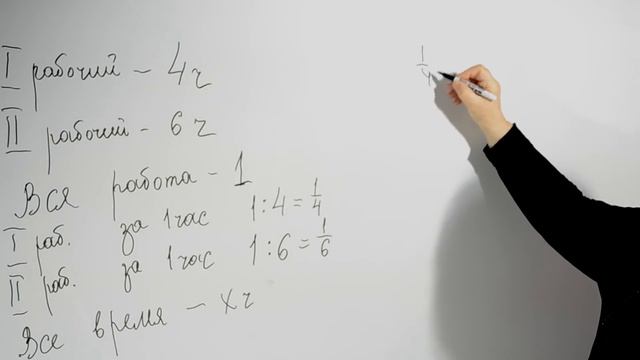 I рабочий - 4 ч
II рабочий - 6 ч
Вся работа - 1
I раб. за 1 час 1 : 4 = 1/4
II раб. за 1 час 1 : 6 = 1/6
Все время - x ч
1/4